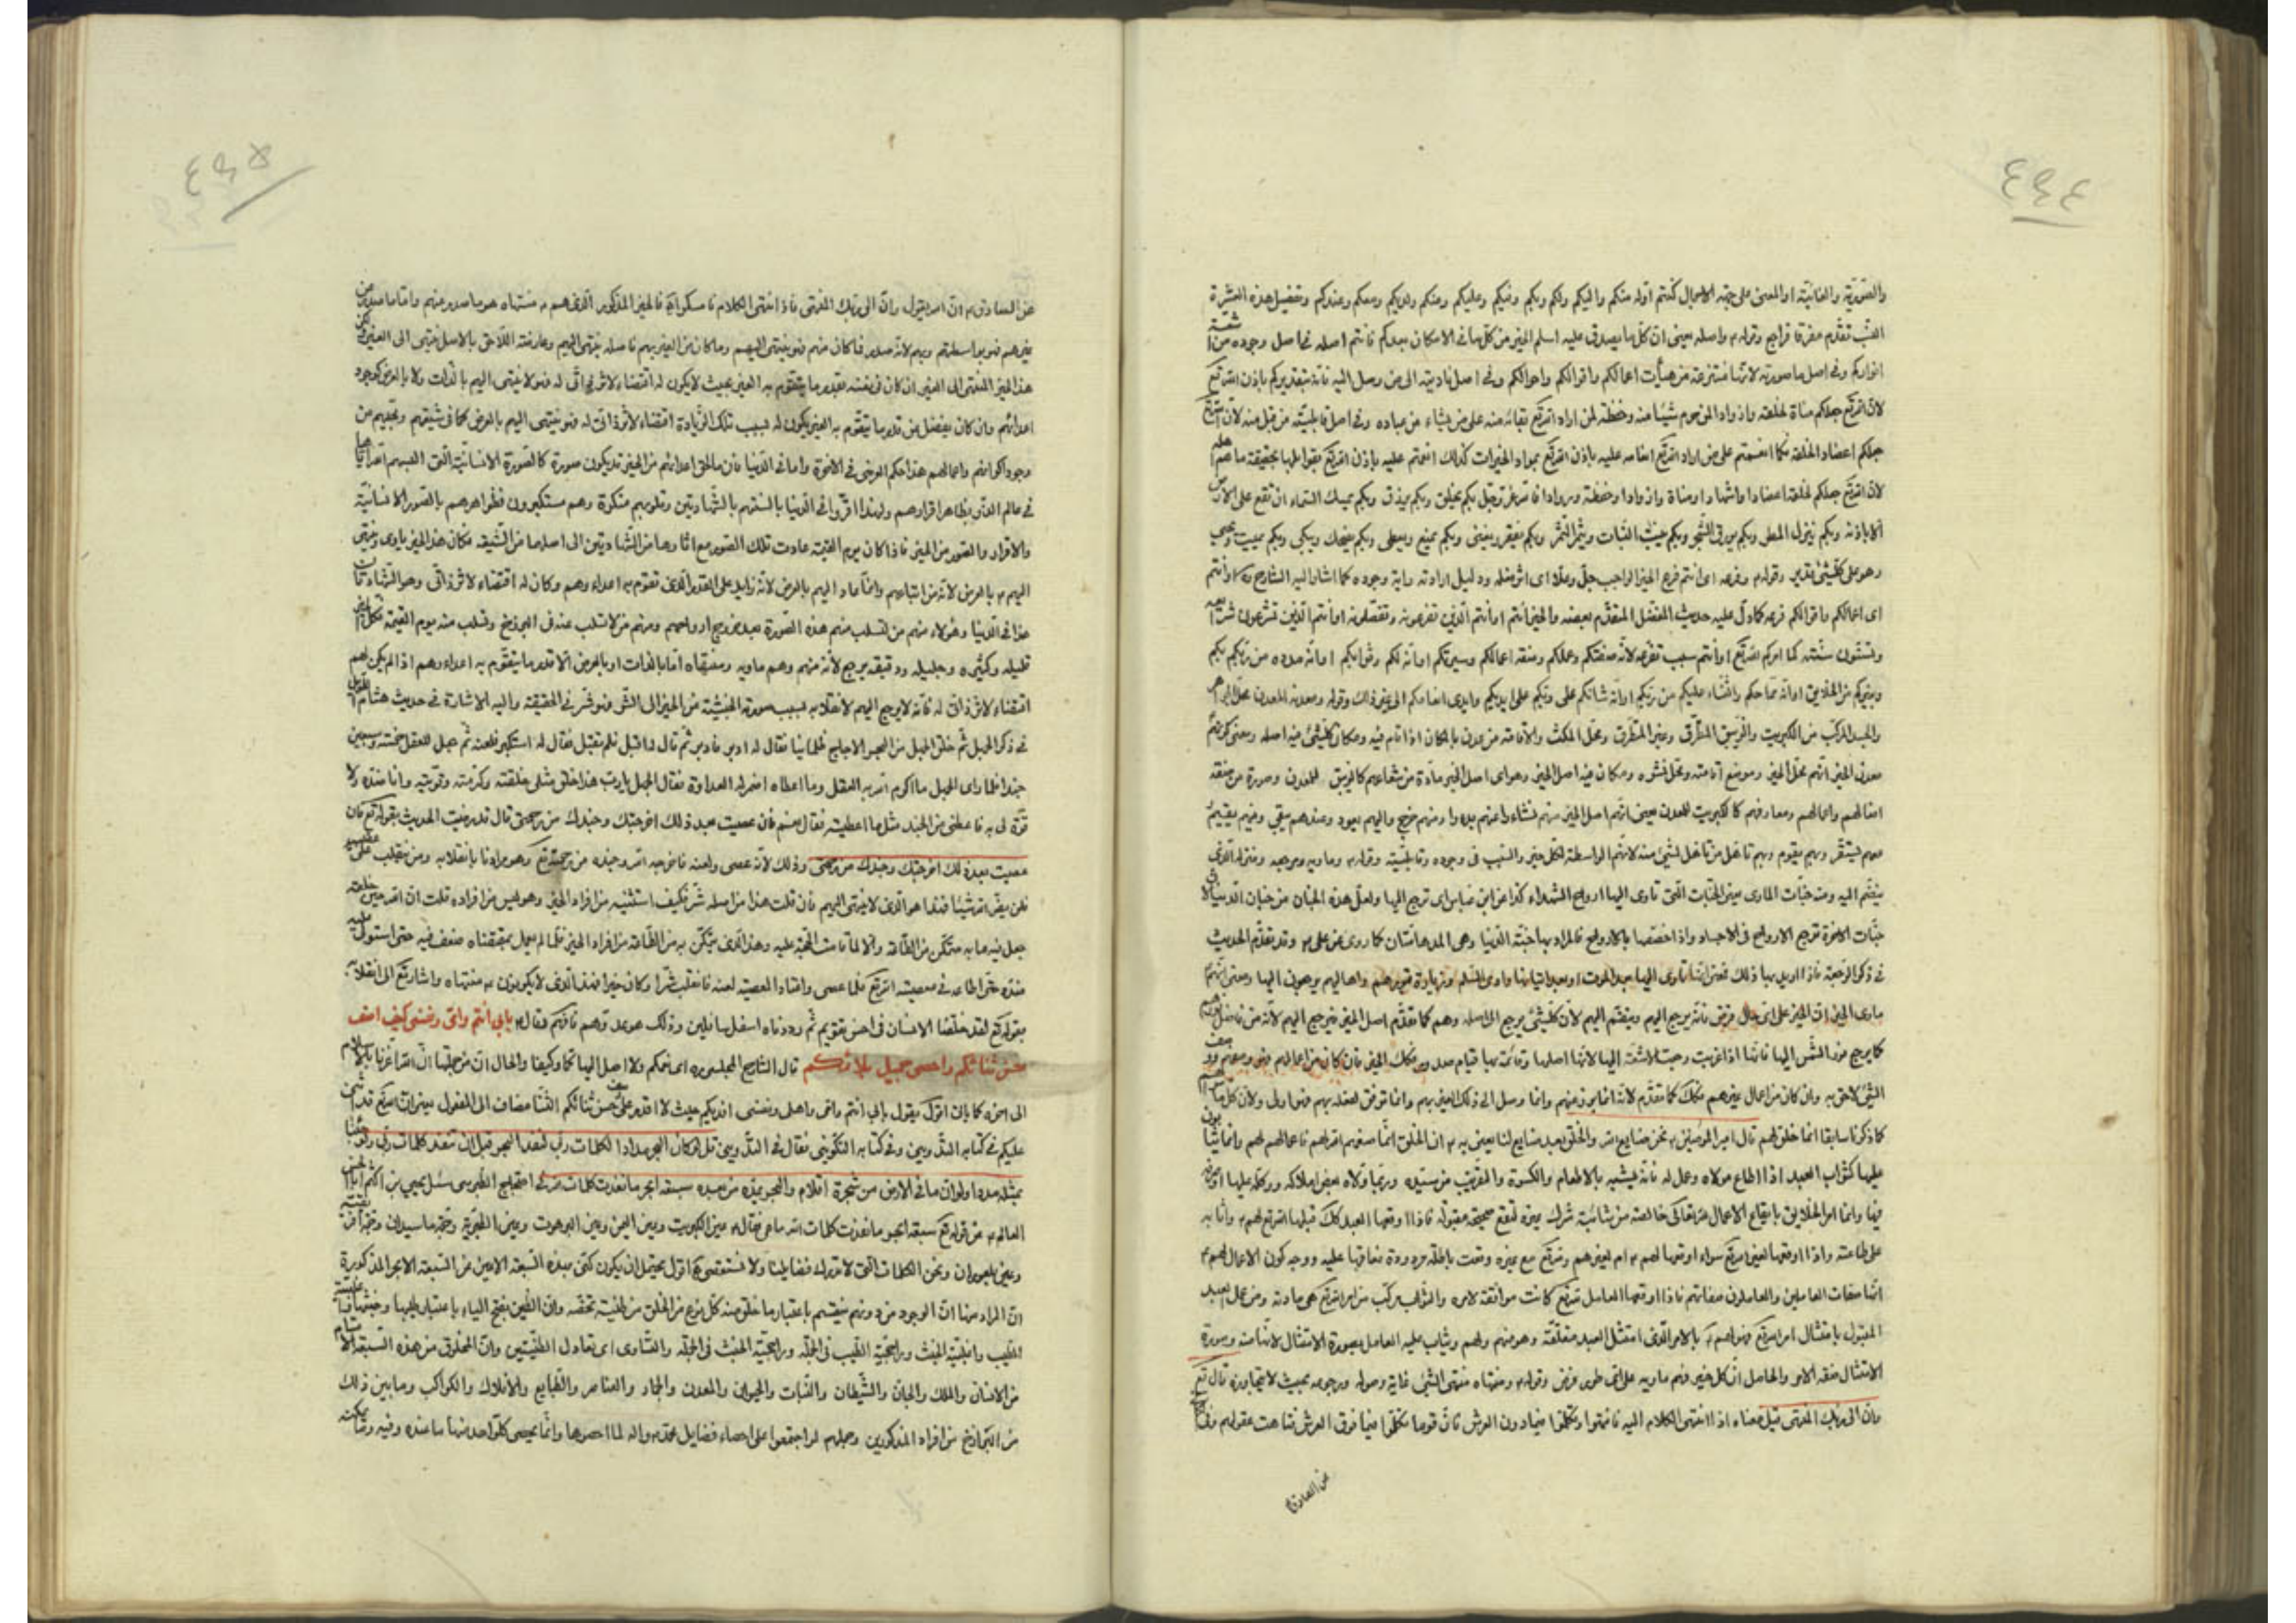 ٤٩٤
والصورية والغائية او المعنى على جهة الاجمال كنتم اوله منكم واليكم ولكم وبكم وفيكم وعليكم وعنكم ولديكم ومعكم وعندكم وتفصيل هذه العشرة
تقدم مفرقا فراجع وقوله واصله يعنى ان كل ما يصدق عليه اسم الخير من كل ما فى الامكان بعدكم فانتم اصله فى اصل وجوده من اشعة
انواركم وفى اصل ما صورته لانها منتزعة من هيأت اعمالكم واقوالكم واحوالكم وفى اصل الى من وصل اليه فانه بتقديركم باذن الله تع
لان الله تع جعلكم مناة لخلقه واذوادا شيئا منه وحفظة لمن اراد الله تع بقائه منه على من يشاء من عباده وفى اصل قابليته من قبل منه لان الله تع
جعلكم اعضاد الخلقه فكما انعمتم على من اراد الله تع انعامه عليه باذن الله تع بمواد الخيرات كذلك انعمتم عليه باذن الله تع بقوابلها بحقيقة ما هم اهله
لان الله تع جعلكم لخلقه اعضادا واشهادا ومناة واذوادا وحفظة وروادا فالله عز وجل بكم يخلق وبكم يرزق وبكم يمسك السماء ان تقع على الارض
الا باذنه وبكم ينزل المطر وبكم يورق الشجر وبكم ينبت النبات ويثمر الثمر وبكم يفقر ويغنى وبكم يمنع ويعطى وبكم يضحك ويبكى وبكم يميت ويحيى
وهو على كلشئ قدير وقوله وفرعه اى انتم فرع الخير الواجب جل وعلا اى اثر فعله ودليل ارادته واية وجوده كما اشار اليه الشارح ره او انتم
اى اعمالكم واقوالكم فرعه كما دل عليه حديث المفضل المتقدم بعضه والخير انتم او انتم الذين تفرعونه وتفصلونه او انتم الذين تشرعون شرائعه
وتسنون سنته كما امركم الله تع او انتم سبب تفرعه لانه صفتكم وعملكم وصفة اعمالكم وسيرتكم او انه لكم وثوابكم او انه مدده من ربكم بكم
وبغيركم من الخلايق او انه مما حكم والثناء عليكم من ربكم او انه شانكم على ربكم على ايديكم وايدى اتباعكم الى غير ذلك وقوله ومعدنه المعدن محل الجواهر
والجسد المركب من الكبريت والزيبق المنطرق وغير المنطرق ومحل المكث والاقامة من عدن بالمكان اذا اقام فيه ومكان كلشئ فيه اصله ومعنى كونهم
معدن الخير انهم محل الخير وموضع اقامته ومحل نشره ومكان فيه اصل الخير وهو اى اصل الخير مادة من شعاعهم كالزيبق للمعدن وصورة من صفة
افعالهم واعمالهم ومعارفهم كالكبريت للمعدن يعنى انهم اصل الخير منهم نشاء وعنهم بدء ومنهم خرج واليهم يعود وعندهم يبقى وفيهم يقيم
ينضم اليه ومنه جنات الماوى يعنى الجنات التى تاوى اليها ارواح الشهداء كذا عن ابن عباس اى ترجع اليها ولعل هذه الجنان من جنان الدنيا لان
جنات الاخرة ترجع الارواح فى الاجساد واذا اختصها بالارواح فالمراد بها جنة الدنيا وهى المدهامتان كما روى عن على وقد تقدم الحديث
ماوى الخير ان الخير على اى حال فرض فانه يرجع اليهم وينضم اليهم لان كلشئ يرجع الى اصله وهم كما تقدم اصل الخير فيرجع اليهم لانه من فاضل نورهم
الشئ لاحق به وان كان من اعمال غيرهم فكك كما تقدم لانه انما برز عنهم وانما وصل الى ذلك الغير بهم وانما توفق لفعله بهم فهو اولى ولان كل ما سواهم
كما ذكرنا سابقا انما خلق لهم قال امير المؤمنين نحن صنايع الله والخلق بعد صنايع لنا يعنى به ان الخلق انما صنعهم الله لهم فاعمالهم لهم وانما يثابون
عليها كثواب العبد اذا اطاع مولاه وعمل له فانه يثيبه بالاطعام والكسوة والتقريب من سيده وربما ولاه بعض املاكه ووكله عليها
على طاعته واذا اوقعها لغير الله تع سواء اوقعها لهم ام لغيرهم ولله تع مع غيره وقعت باطلة مردودة يعاقبها عليه ووجه كون الاعمال لهم
انها صفات العاملين والعاملون صفاتهم فاذا اوقعها العامل لله تع كانت موافقة لامره والثواب مركب من امر الله تع هى مادته ومن عمل العبد
المقبول بامتثال امر الله تع فهو لهم بالامر الذى امتثل العبد متعلقة وهو منهم ولهم ويثاب عليه العامل بصورة الامتثال لانها منه وصورة
الامتثال صفة الامر والحاصل ان كل خير فهم ماويه على اى طور فرض وقوله ومنتهاه منتهى الشئ غاية وصوله ورجوعه بحيث لا يتجاوزه قال تع
وان الى ربك المنتهى قيل معناه اذا انتهى الكلام اليه فانتهوا وتكلموا فيما دون العرش فان قوما تكلموا فيما فوق العرش فتاهت عقولهم
عن الصادق
٤٩٥
عن الصادق ان الله يقول وان الى ربك المنتهى فاذا انتهى الكلام فامسكوا فالخير المذكور الذى هم منتهاه هو ما صدر عنهم واما ما صدر من
غيرهم فهو بواسطتهم وبهم لانه صدر فما كان منهم فهو ينتهى اليهم وما كان من الغير بهم فاصله ينتهى اليهم وعارضته اللاحق بالاصل ينتهى الى الغير
هذا الخير المنتهى الى الغير ان كان فى نفسه بقدر ما يتقوم به الغير بحيث لا يكون له اقتضاء لاثر ذاتى له فهو لا ينتهى اليهم بالذات ولا بالعرض كوجود
اعدائهم وان كان يفضل عن قدر ما يتقوم به الغير يكون له بسبب تلك الزيادة اقتضاء لاثر ذاتى له فهو ينتهى اليهم بالعرض كما فى شيعتهم ومحبيهم من
وجود اكوانهم واعمالهم هذا حكم العرضى فى الاخرة واما فى الدنيا فان ما لحق اعدائهم من الخير قد يكون صورة كالصورة الانسانية التى البسهم الله اياها
فى عالم الذر بظاهر اقرارهم ولهذا اقروا فى الدنيا بالسنتهم بالشهادتين وقلوبهم منكرة وهم مستكبرون فظواهرهم بالصور الانسانية
والاقرار والصور من الخير فاذا كان يوم القيمة عادت تلك الصور مع اثارها من الشهادتين الى اصلها من الشيعة فكان هذا الخير ياوى وينتهى
اليهم بالعرض لانه من اتباعهم وانما عاد اليهم بالعرض لانه زايد على القدر الذى تقوم به اعداءهم وكان له اقتضاء لاثر ذاتى وهو الشهادتان
هذا فى الدنيا وهؤلاء منهم من تسلب منهم هذه الصورة بعد خروج ارواحهم ومنهم من لا تسلب عنه فى البرزخ وتسلب منه يوم القيمة فكل الخير
قليله وكثيره وجليله ودقيقه يرجع لانه منهم وهم ماويه ومنتهاه اما بالذات او بالعرض الا قدر ما يتقوم به اعداءهم اذا لم يكن لهم
اقتضاء لاثر ذاتى له فانه لا يرجع اليهم لانقلابه بسبب صورته الخبيثة من الخير الى الشر فهو شر فى الحقيقة واليه الاشارة فى حديث هشام الطويل
فى ذكر الجهل ثم خلق الجهل من البحر الاجاج ظلمانيا فقال له ادبر فادبر ثم قال له اقبل فلم يقبل فقال له استكبرت فلعنه ثم جعل للعقل خمسة وسبعين
جندا فلما راى الجهل ما اكرم الله به العقل وما اعطاه اضمر له العداوة فقال الجهل يا رب هذا خلق مثلى خلقته وكرمته وقويته وانا ضده ولا
قوة لى به فاعطنى من الجند مثل ما اعطيته فقال نعم فان عصيت بعد ذلك اخرجتك وجندك من رحمتى قال قد رضيت الحديث بقوله تع فان
عصيت بعد ذلك اخرجتك وجندك من رحمتى وذلك لانه عصى ولعنه فاخرجه الله وجنده من رحمته تع وهو مرادنا بانقلابه ومن ينقلب على عقبيه
فلن يضر الله شيئا فهذا هو الذى لا ينتهى اليهم فان قلت هذا من اصله شر فكيف استثنيته من افراد الخير وهو ليس من افراده قلت ان الله حين خلقه
جعل فيه ما به يتمكن من الطاعة والا لما قامت الحجة عليه وهذا الذى يتمكن به من الطاعة من افراد الخير فلما لم يعمل بمقتضاه ضعف فيه حتى استولى عليه
ضده حتى اطاعه فى معصية الله تع فلما عصى واقتاد المعصية لعنه فانقلب شرا وكان خيرا فهذا الذى لا يكونون منتهاه واشار تع الى انقلابه
بقوله تع لقد خلقنا الانسان فى احسن تقويم ثم رددناه اسفل سافلين وذلك هو عدوهم فافهم قال بابى انتم وامى ونفسى كيف اصف
حسن ثنائكم واحصى جميل بلائكم قال الشارح المجلسى ره اى نعمكم ولا اصل اليها كما وكيفا والحال ان من جملتها ان الله اعزنا بالاسلام
الى اخره كما ياتى اقول يقول بابى انتم وامى واهلى ونفسى افديكم حيث لا اقدر على وصف حسن ثنائكم الثناء مضاف الى المفعول يعنى ان الله تع قد اثنى
عليكم فى كتابه التدوينى وفى كتابه التكوينى فقال فى التدوينى قل لو كان البحر مدادا لكلمات ربى لنفد البحر قبل ان تنفد كلمات ربى ولو جئنا
بمثله مددا ولو ان ما فى الارض من شجرة اقلام والبحر يمده من بعده سبعة ابحر ما نفدت كلمات الله فى احتجاج الطبرسى سئل يحيى بن اكثم ابا الحسن
العالم عن قوله تع سبعة ابحر ما نفدت كلمات الله ما هى فقال هى عين الكبريت وعين اليمن وعين البرهوت وعين الطبرية وحمة ماسيدان وحمة افريقية
وعين بلعوران ونحن الكلمات التى لا تدرك فضايلنا ولا تستقصى اقول يحتمل ان يكون كنى بهذه السبعة الاعين عن السبعة الابحر المذكورة
ان المراد منها ان الوجود من دونهم ينقسم باعتبار ما خلق منه كل نوع من الخلق من طينة تخصه وان الطين بفتح الياء باعتبار طيبها وخبثها
الطيب واغلبية الخبث وراجحية الطيب فى الجملة وراجحية الخبث فى الجملة والتساوى اى تعادل الطينتين وان المخلوق من هذه السبعة الاقسام
من الانسان والملك والجان والشيطان والنبات والحيوان والمعدن والجماد والعناصر والطبايع والافلاك والكواكب وما بين ذلك
من البرازخ من افراد المذكورين وجملهم لو اجتمعوا على احصاء فضايل محمد واله لما احصوها وانما يحصى كل واحد منها ما عنده وفيه